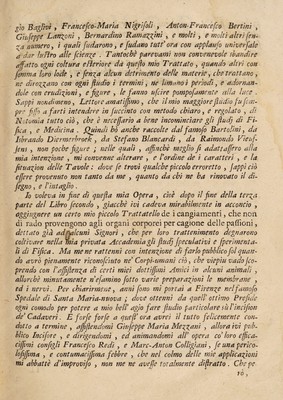 gio Baglivi, Francesco-Maria Nigrisoli, Anton-Francesco Bertini,
Giuseppe Lanzoni, Bernardino Ramazzini, e molti, e molti altri sen-
za numero, i quali sudarono, e sudano tutt' ora con applauso universale
a dar lustro alle scienze. Tantoché parevami non convenevole sbandire
affatto ogni coltura esteriore da questo mio Trattato, quando altri con
somma loro lode, e senza alcun detrimento delle materie, che trattano,
ne dirozzano con ogni studio i termini, ne limano i periodi, e adornan-
dole con erudizioni, e figure, le fanno uscire pomposamente alla luce.
Sappi nondimeno, Lettore amatissimo, che il mio maggiore studio fu sem-
per fisso a farti intendere in succinto con metodo chiaro, e regolato, di
Notomia tutto ciò, che è necessario a bene incominciare gli studj di Fi-
sica, e Medicina. Quindi hò anche raccolte dal famoso Bartolini, da
Isbrando Diemerbroek, da Stefano Blancardi, da Raimondo Vieus-
sens, non poche figure; nelle quali, affinché meglio si adattassero alla
mia intenzione, mi convenne alterare, e l'ordine de i caratteri, e la
situazion delle Tavole; dove se trovi qualche piccolo erroretto, sappi ciò
essere provenuto non tanto da me, quanto da chi ne ha rinovato il di-
segno, e l'intaglio.
Io voleva in fine di questa mia Opera, cioè dopo il fine della terza
parte del Libro secondo, giacché ivi cadeva mirabilmente in acconcio,
aggiungere un certo mio piccolo Trattatello de i cangiamenti, che non
di rado provengono agli organi corporei per cagione delle passioni,
dettato già ad alcuni Signori, che per loro trattenimento degnarono
coltivare nella mia privata Accademia gli studj speculativi e sperimenta-
li di Fisica. Ma me ne rattenni con intenzione di farlo pubblico sol quan-
do avrò pienamente riconosciuto ne' Corpi-umani ciò, che viepiù vado sco-
prendo con l'assistenza di certi miei dottissimi Amici in alcuni animali,
allorché minutamente n'esamino sotto varie preparazioni le membrane,
ed i nervi. Per chiarirmene, anni sono mi portai a Firenze nel famoso
Spedale di Santa Maria-nuova; dove ottenni da quell' ottimo Prefide
ogni comodo per potere a mio bell' agio fare studio particolare sù l'incisione
de' Cadaveri. E forse forse a quest' ora avrei il tutto felicemente con-
dotto a termine, assistendomi Giuseppe Maria Mezzani, allora ivi pub-
blico Incisore, e dirigendomi, ed animandomi all' opera co' loro effica-
cissimi consigli Francesco Redi, e Marc-Anton Colligiani, se una perico-
losissima, e contumacissima febbre, che nel colmo delle mie applicazioni
mi abbattè d'improviso, non me ne avesse totalmente distratto. Che pe-
rò,